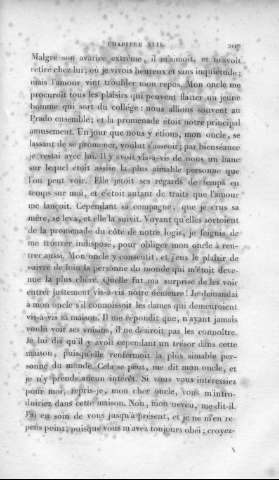 CHAPITRE XLII. 
Malgré son avarice extrême, il m'aimoit, et m'avoit
retiré chez lui; où je vivois heureux et sans inquiétude;
mais l'amour vint troubler mon repos. Mon oncle me
procuroit tous les plaisirs qui peuvent flatter un jeune
homme qui sort du collége: nous allions souvent au
Prado ensemble; et la promenade étoit notre principal
amusement. Un jour que nous y étions, mon oncle, se
lassant de se promener, voulut s'asseoir; par bienséance
je restai avec lui. Il y avoit vis-à-vis de nous un banc
sur lequel étoit assise la plus aimable personne que
l'on peut voir. Elle jetoit ses regards de temps en
temps sur moi, et c'étoit autant de traits que l'amour
me lançoit. Cependant sa compagne, que je crus sa
mère, se leva, et elle la suivit. Voyant qu'elles sortoient
de la promenade du côté de notre logis, je feignis de
me trouver indisposé, pour obliger mon oncle à ren-
trer aussi. Mon oncle y consentit, et j'eus le plaisir de
suivre de loin la personne du monde qui m'étoit deve-
nue la plus chère. Quelle fut ma surprise de les voir
entrer justement vis-à-vis notre demeure! Je demandai
à mon oncle s'il connoissoit les dames qui demeuroient
vis-à-vis sa maison. Il me répondit que, n'ayant jamais
voulu voir ses voisins, il ne désiroit pas les connoître.
Je lui dis qu'il y avoit cependant un trésor dans cette
maison, puisqu'elle renfermoit la plus aimable per-
sonne du monde. Cela se peut, me dit mon oncle, et
je n'y prends aucun intérêt. Si vous vous intéressez
pour moi, repris-je, mon cher oncle, vous m'intro-
duiriez dans cette maison. Non, mon neveu, me dit-il.
J'ai eu soin de vous jusqu'à présent, et je ne m'en re-
pens point; puisque vous m'avez toujours obéi, croyez-